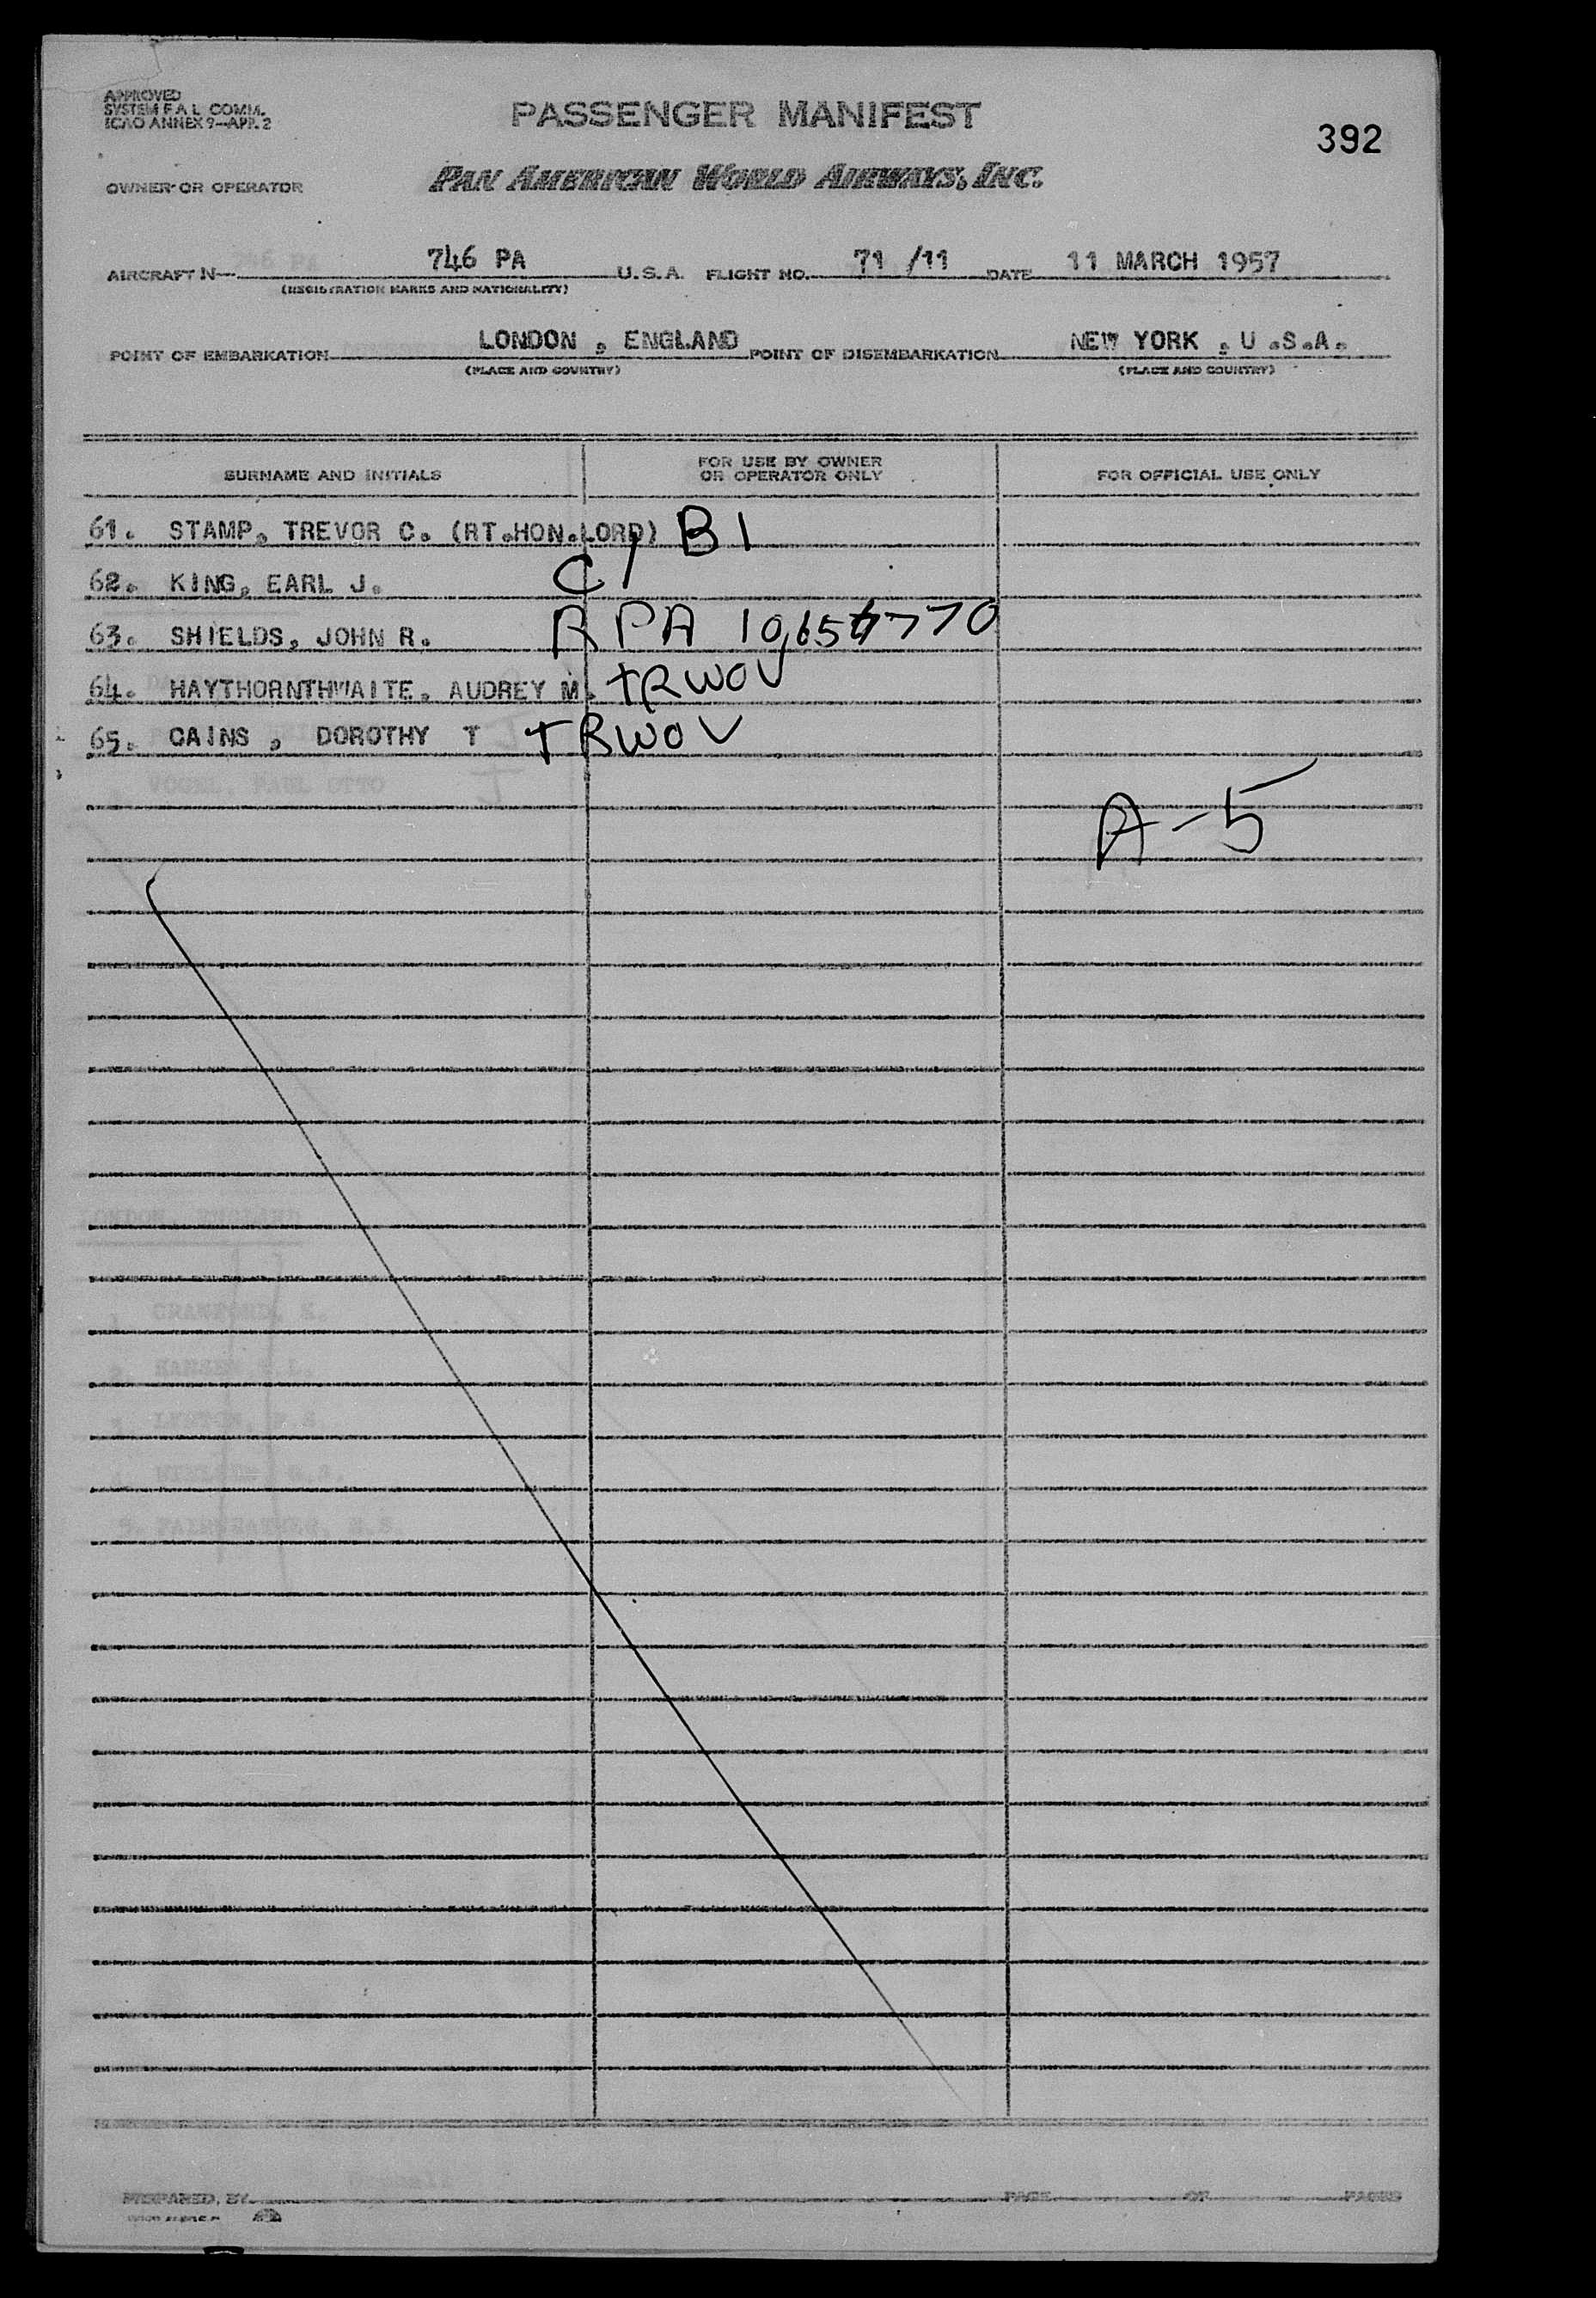 APPROVED
SYSTEM F A L COMM.
ICAO ANNEX 9—APP. 2
PASSENGER MANIFEST
392
OWNER OR OPERATOR
PAN AMERICAN WORLD AIRWAYS, INC.
AIRCRAFT N— 746 PA U.S.A. FLIGHT NO. 71 /11 DATE 11 MARCH 1957
(REGISTRATION MARKS AND NATIONALITY)
POINT OF EMBARKATION LONDON , ENGLAND POINT OF DISEMBARKATION NEW YORK , U .S.A.
(PLACE AND COUNTRY) (PLACE AND COUNTRY)
SURNAME AND INITIALS
FOR USE BY OWNER
OR OPERATOR ONLY
FOR OFFICIAL USE ONLY
61. STAMP, TREVOR C. (RT.HON.LORD) B1
62. KING, EARL J. C/
63. SHIELDS, JOHN R. A PA
64. HAYTHORNTHWAITE, AUDREY M. TRWOV
65. CAINS , DOROTHY T TRWOV
VOGEL, PAUL OTTO
A-5
LONDON, ENGLAND
PREPARED BY
PAGE OF PAGES